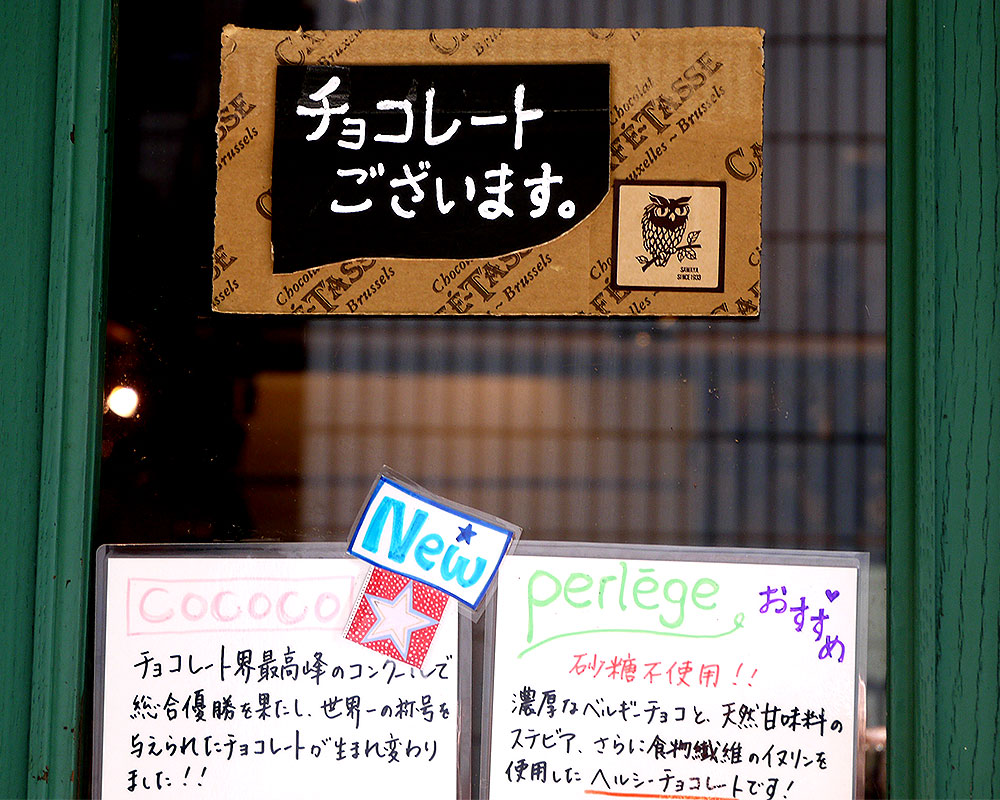 チョコレート
ございます。
CAFÉ-TASSE
Chocolat
Bruxelles ~ Brussels
SAWAYA
SINCE 1933
New
cococo
チョコレート界最高峰のコンクールで
総合優勝を果たし、世界一の称号を
与えられたチョコレートが生まれ変わり
ました!!
perlēge
おすすめ
砂糖不使用!!
濃厚なベルギーチョコと、天然甘味料の
ステビア、さらに食物繊維のイヌリンを
使用したヘルシーチョコレートです!